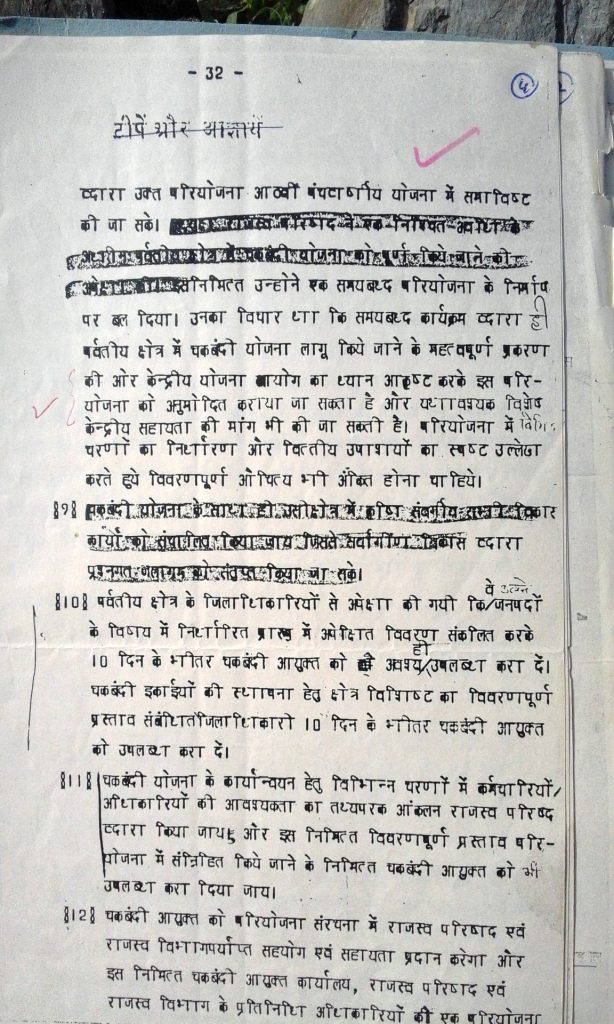 - 32 -
४
टीपें और आज्ञायें
व्दारा उक्त परियोजना आठवीं पंचवर्षीय योजना में समाविष्ट
की जा सके। राजस्व परिषद ने एक निश्चित अवधि के
पर्वतीय क्षेत्र में चकबंदी योजना को पूर्ण किये जाने की
इस निमित्त उन्होने एक समयबध्द परियोजना के निर्माण
पर बल दिया। उनका विचार था कि समयबध्द कार्यक्रम व्दारा ही
पर्वतीय क्षेत्र में चकबंदी योजना लागू किये जाने के महत्वपूर्ण प्रकरण
की ओर केन्द्रीय योजना आयोग का ध्यान आकृष्ट करके इस परि-
योजना को अनुमोदित कराया जा सकता है और यथावश्यक विशेष
केन्द्रीय सहायता की मांग भी की जा सकती है। परियोजना में
चरणों का निर्धारण और वित्तीय उपाशयों का स्पष्ट उल्लेख
करते हुये विवरणपूर्ण औचित्य भी अंकित होना चाहिये।
§9§ चकबंदी योजना के साथ ही उसी क्षेत्र में कृषि संवर्गीय विकास
कार्यो को संपादित किया जाय जिससे सर्वांगीण विकास व्दारा
को संतृप्त किया जा सके।
§10§ पर्वतीय क्षेत्र के जिलाधिकारियों से अपेक्षा की गयी कि वे अपने जनपदों
के विषय में निर्धारित प्रारूप में अपेक्षित विवरण संकलित करके
10 दिन के भीतर चकबंदी आयुक्त को अवश्य ही उपलब्ध करा दें।
चकबंदी इकाईयों की स्थापना हेतु क्षेत्र विशिष्ट का विवरणपूर्ण
प्रस्ताव संबंधित जिलाधिकारी 10 दिन के भीतर चकबंदी आयुक्त
को उपलब्ध करा दें।
§11§ चकबंदी योजना के कार्यान्वयन हेतु विभिन्न चरणों में कर्मचारियों/
अधिकारियों की आवश्यकता का तथ्यपरक आंकलन राजस्व परिषद
व्दारा किया जाय और इस निमित्त विवरणपूर्ण प्रस्ताव परि-
योजना में संन्निहित किये जाने के निमित्त चकबंदी आयुक्त को भी
उपलब्ध करा दिया जाय।
§12§ चकबंदी आयुक्त को परियोजना संरचना में राजस्व परिषद एवं
राजस्व विभाग पर्याप्त सहयोग एवं सहायता प्रदान करेगा और
इस निमित्त चकबंदी आयुक्त कार्यालय, राजस्व परिषद एवं
राजस्व विभाग के प्रतिनिधि अधिकारियों की एक परियोजना